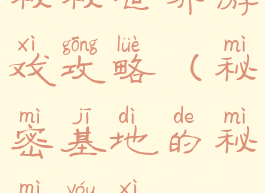 xì gōng lüè mì
戏攻略（秘
mì jī dì de mì
密基地的秘
mì yóu xì